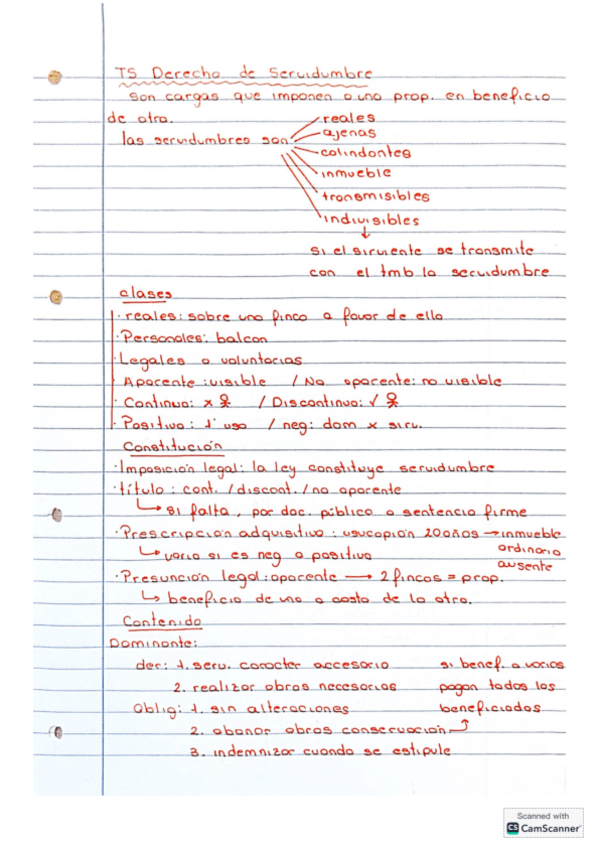 T5 Derecho de Servidumbre
Son cargas que imponen a una prop. en beneficio
de otra.
las servidumbres son:
reales
ajenas
colindantes
inmueble
transmisibles
indivisibles
↓
si el sirviente se transmite
con el tmb la servidumbre
clases
· reales: sobre una finca a favor de ella
· Personales: balcon
· Legales o voluntarias
· Aparente: visible / No aparente: no visible
· Continua: x / Discontinua: ✓
· Positiva: 1° uso / neg: dom x sirv.
Constitución
· Imposición legal: la ley constituye servidumbre
· título: cont. / discont. / no aparente
↳ si falta, por doc. público o sentencia firme
· Prescripción adquisitiva: usucapion 20 años → inmueble
ordinario
ausente
↳ varia si es neg o positiva
· Presunción legal: aparente → 2 fincas = prop.
↳ beneficio de una a costa de la otra.
Contenido
Dominante:
der: 1. serv. caracter accesorio
2. realizar obras necesarias
si benef. a varios
pagan todos los
beneficiados
Oblig: 1. sin alteraciones
2. abonar obras conservación
3. indemnizar cuando se estipule
Scanned with
CS CamScanner